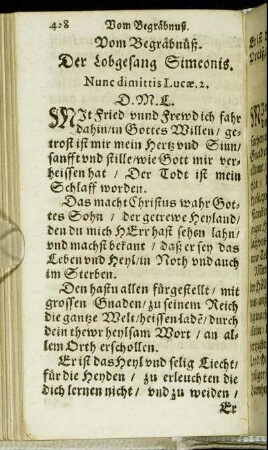 428 Vom Begräbnuß.
Vom Begräbnüß.
Der Lobgesang Simeonis.
Nunc dimittis Lucæ. 2.
D. M. L.
MIt Fried vnnd Frewd ich fahr
dahin / in Gottes Willen / ge-
trost ist mir mein Hertz vnd Sinn /
sanfft vnd stille / wie Gott mir ver-
heissen hat / Der Todt ist mein
Schlaff worden.
Das macht Christus wahr Got-
tes Sohn / der getrewe Heyland /
den du mich HErr hast sehen lahn /
vnd machst bekant / daß er sey das
Leben vnd Heyl / in Noth vnd auch
im Sterben.
Den hastu allen fürgestellt / mit
grossen Gnaden / zu seinem Reich
die gantze Welt / heissen ladẽ / durch
dein thewr heylsam Wort / an al-
lem Orth erschollen.
Er ist das Heyl vnd selig Liecht /
für die Heyden / zu erleuchten die
dich kennen nicht / vnd zu weiden /
Er